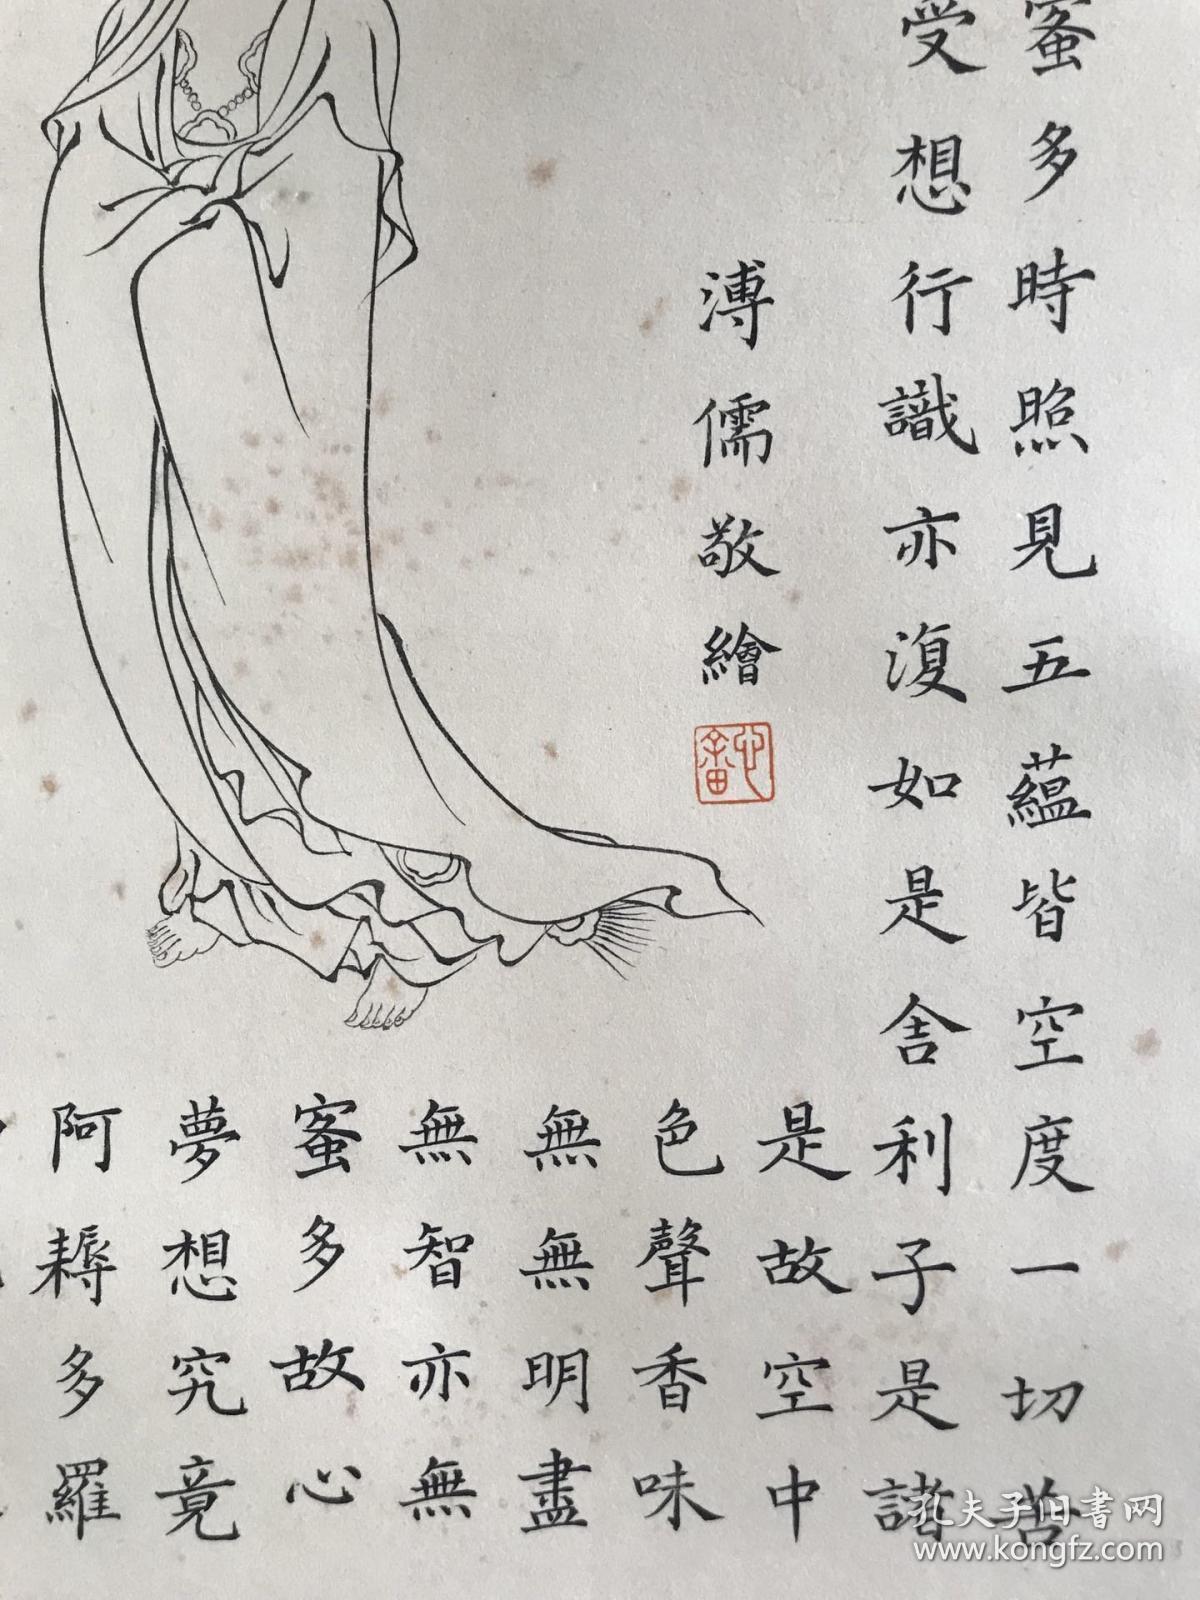 蜜多時照見五蘊皆空度一切苦
受想行識亦復如是舍利子是諸
溥儒敬繪
是故空中
色聲香味
無無明盡
無智亦無
蜜多故心
夢想究竟
阿耨多羅
孔夫子旧书网
www.kongfz.com